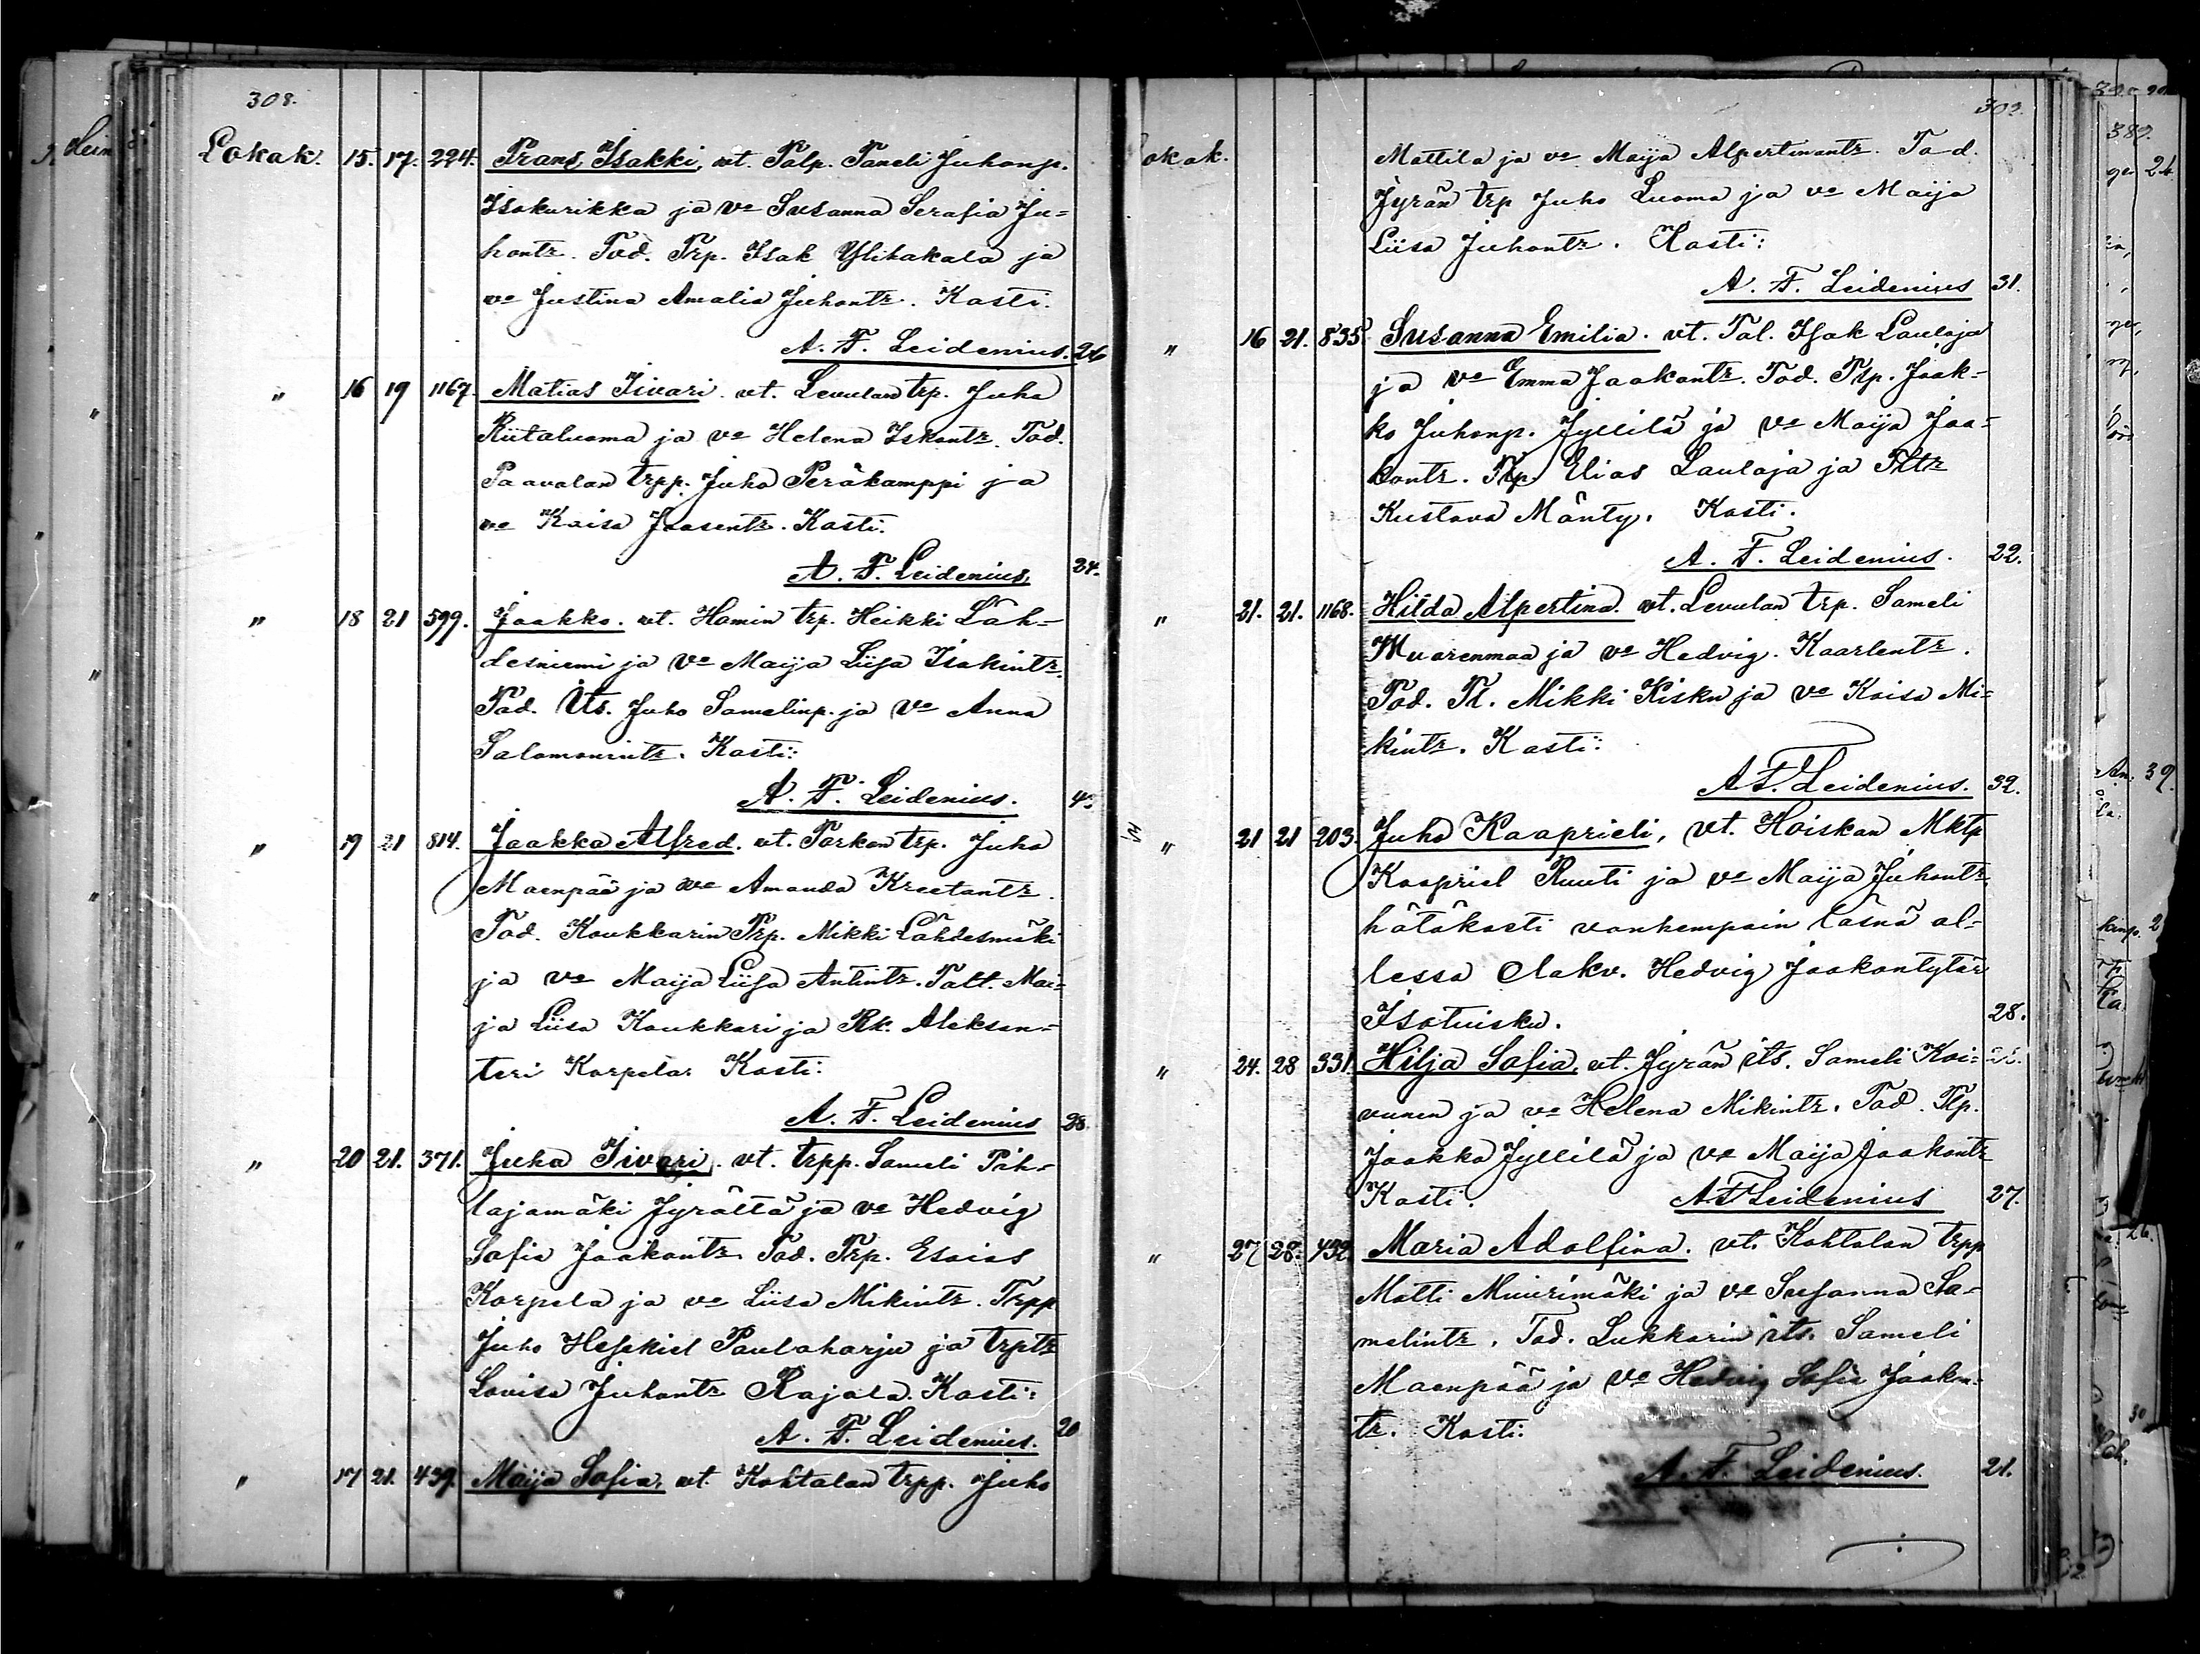 308.
Lokak. 15. 17. 224. Frans Isakki, vt. Talp. Taneli Juhonp.
Isokurikka ja vo Susanna Serafia Ju=
hontr. Tod. Trp. Isak Ylihakala ja
vo Justina Amalia Juhontr. Kasti.
A. F. Leidenius. 26
" 16 19 1167. Matias Iivari. vt. Levulan trp. Juha
Riitaluoma ja vo Helena Iskontr. Tod.
Paavolan trpp. Juho Peräkamppi ja
vo Kaisa Joosentr. Kasti:
A. F. Leidenius, 24.
" 18 21 599. Jaakko. vt. Hamin trp. Heikki Läh=
desniemi ja vo Maija Liisa Isakintr.
Tod. Its. Juho Samelinp. ja vo Anna
Salomonintr. Kasti:
A. F. Leidenius. 43
" 19 21 814. Jaakko Alfred. vt. Torkon trp. Juho
Maenpää ja vo Amanda Kreetantr.
Tod. Koukkarin Trp. Mikki Lähdesmäki
ja vo Maija Liisa Antintr. Talt. Mai=
ja Liisa Koukkari ja Rk. Aleksan=
teri Korpela. Kasti:
A. F. Leidenius 28
" 20 21. 371. Juha Iivari. vt. trpp. Sameli Pih=
lajamäki Jyrältä ja vo Hedvig
Sofia Jaakontr. Tod. Trp. Esaias
Korpela ja vo Liisa Mikintr. Trpp
Juho Hesekiel Paulaharju ja trptr
Lovisa Juhontr Rajala. Kasti:
A. F. Leidenius. 20
" 17 21. 439. Maija Sofia, vt. Kohtalan trpp. Juho
309.
okak. Mattila ja vo Maija Alpertinantr. Tod.
Jyrän trp Juho Luoma ja vo Maija
Liisa Juhontr. Kasti:
A. F. Leidenius 31.
" 16 21. 835 Susanna Emilia. vt. Tal. Isak Laulaja
ja vo Emma Jaakontr. Tod. Tlp. Jaak=
ko Juhonp. Jyllilä ja vo Maija Jaa=
kontr. Tlp. Elias Laulaja ja Tltr
Kustava Mänty. Kasti.
A. F. Leidenius. 22.
" 21. 21. 1168. Hilda Alpertina. vt. Levulan trp. Sameli
Muurenmaa ja vo Hedvig. Kaarlentr.
Tod. Tl. Mikki Kisku ja vo Kaisa Mi=
kintr. Kasti:
A F. Leidenius. 32.
" 21 21 203. Juho Kaaprieli, vt. Hoiskan Mktp
Kaapriel Ruuti ja vo Maija Juhontr,
hätäkasti vanhempain läsnä ol=
lessa Olakv. Hedvig Jaakontytär
Isotuisku. 28.
" 24. 28 331. Hilja Sofia, vt. Jyrän its. Sameli Koi=
vunen ja vo Helena Mikintr. Tod. Tlp.
Jaakko Jyllilä ja vo Maija Jaakontr
Kasti. A F Leidenius 27.
" 27 28. 432 Maria Adolfina. vt. Kohtalan trpp
Matti Muurimäki ja vo Susanna Sa=
melintr. Tod. Lukkarin its. Sameli
Maenpää ja vo Hedvig Sofia Jaakon=
tr. Kasti:
A. F. Leidenius. 21.